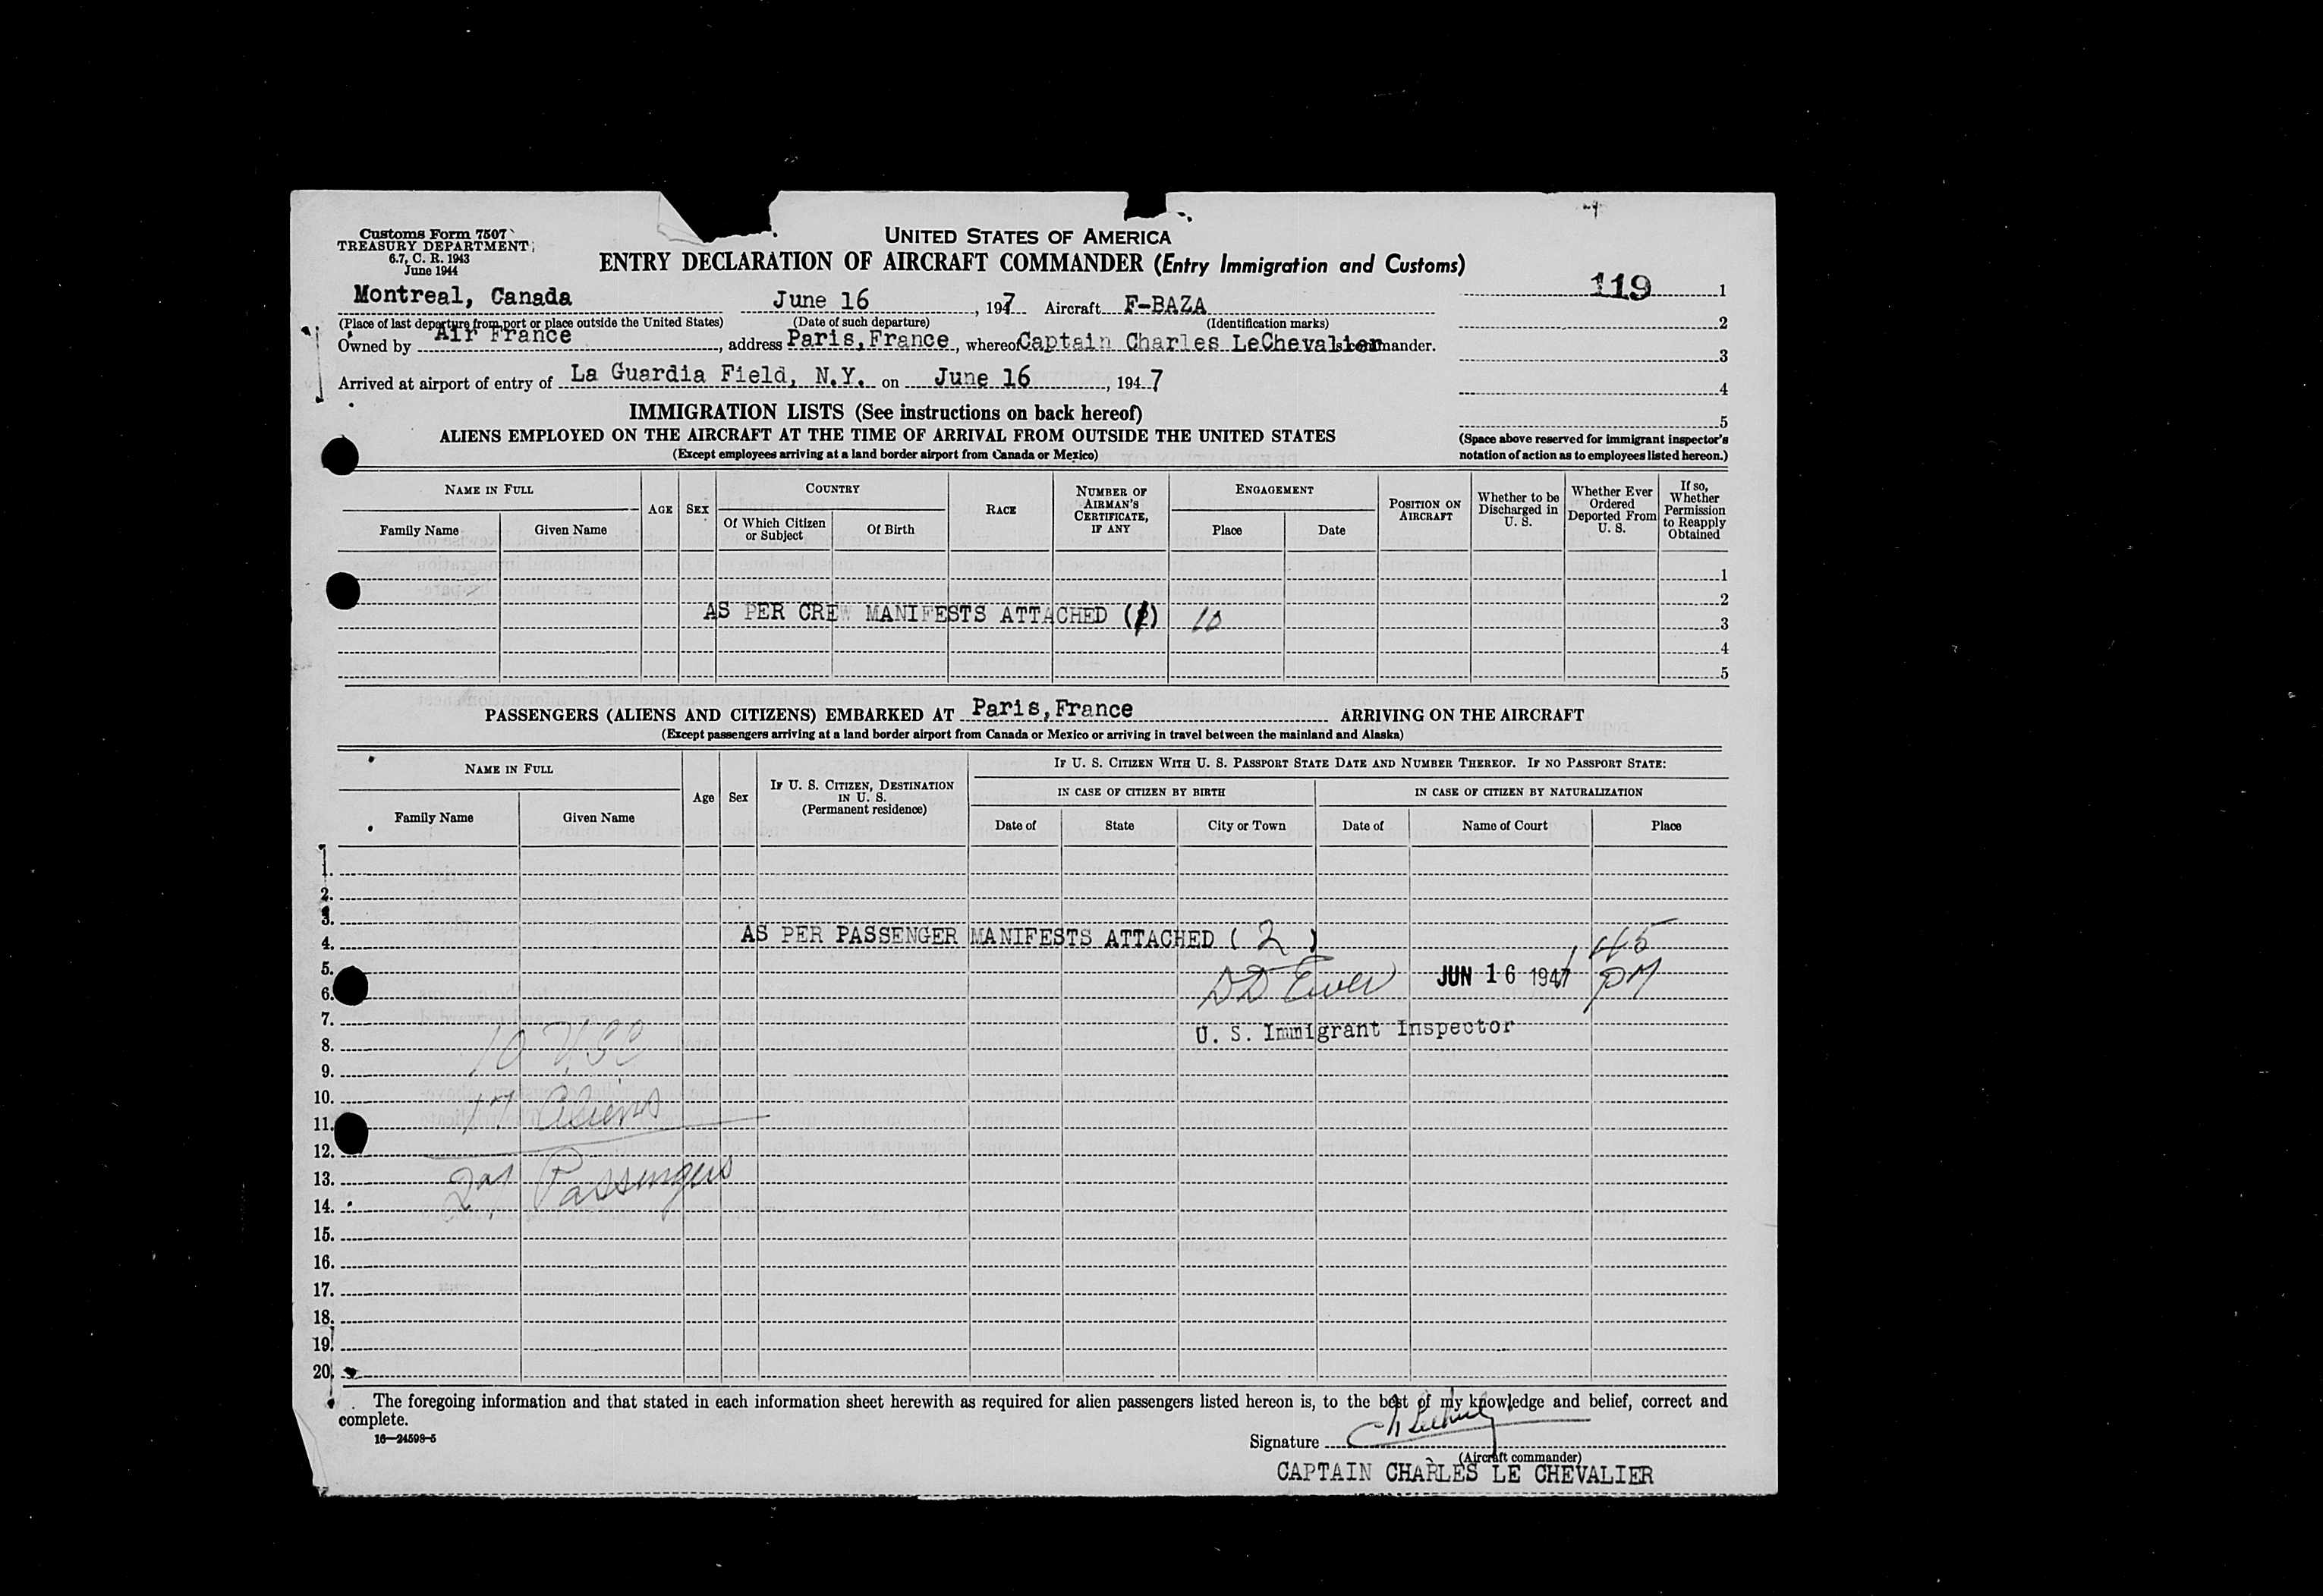 Customs Form 7507
TREASURY DEPARTMENT
6.7, C. R. 1943
June 1944
UNITED STATES OF AMERICA
ENTRY DECLARATION OF AIRCRAFT COMMANDER (Entry Immigration and Customs)
119 1
Montreal, Canada June 16, 1947 Aircraft F-BAZA
(Place of last departure from port or place outside the United States) (Date of such departure) (Identification marks)
2
Owned by Air France, address Paris, France, whereof Captain Charles LeChevalier is commander.
3
Arrived at airport of entry of La Guardia Field, N.Y. on June 16, 1947
4
IMMIGRATION LISTS (See instructions on back hereof)
5
ALIENS EMPLOYED ON THE AIRCRAFT AT THE TIME OF ARRIVAL FROM OUTSIDE THE UNITED STATES
(Except employees arriving at a land border airport from Canada or Mexico)
(Space above reserved for immigrant inspector's
notation of action as to employees listed hereon.)
NAME IN FULL
Family Name Given Name
AGE SEX
COUNTRY
Of Which Citizen or Subject Of Birth
RACE
NUMBER OF AIRMAN'S CERTIFICATE, IF ANY
ENGAGEMENT
Place Date
POSITION ON AIRCRAFT
Whether to be Discharged in U. S.
Whether Ever Ordered Deported From U. S.
If so, Whether Permission to Reapply Obtained
1
2
AS PER CREW MANIFESTS ATTACHED ( ) 10 3
4
5
PASSENGERS (ALIENS AND CITIZENS) EMBARKED AT Paris, France ARRIVING ON THE AIRCRAFT
(Except passengers arriving at a land border airport from Canada or Mexico or arriving in travel between the mainland and Alaska)
NAME IN FULL
Family Name Given Name
Age Sex
IF U. S. CITIZEN, DESTINATION IN U. S. (Permanent residence)
IF U. S. CITIZEN WITH U. S. PASSPORT STATE DATE AND NUMBER THEREOF. IF NO PASSPORT STATE:
IN CASE OF CITIZEN BY BIRTH IN CASE OF CITIZEN BY NATURALIZATION
Date of State City or Town Date of Name of Court Place
1.
2.
3.
4. AS PER PASSENGER MANIFESTS ATTACHED ( 2 ) 145
5. JUN 16 1947 PM
6.
7. U. S. Immigrant Inspector
8. 10 USC
9.
10. 17 Aliens
11.
12.
13. Passengers
14.
15.
16.
17.
18.
19.
20.
The foregoing information and that stated in each information sheet herewith as required for alien passengers listed hereon is, to the best of my knowledge and belief, correct and
complete.
16—24598-5
Signature
(Aircraft commander)
CAPTAIN CHARLES LE CHEVALIER